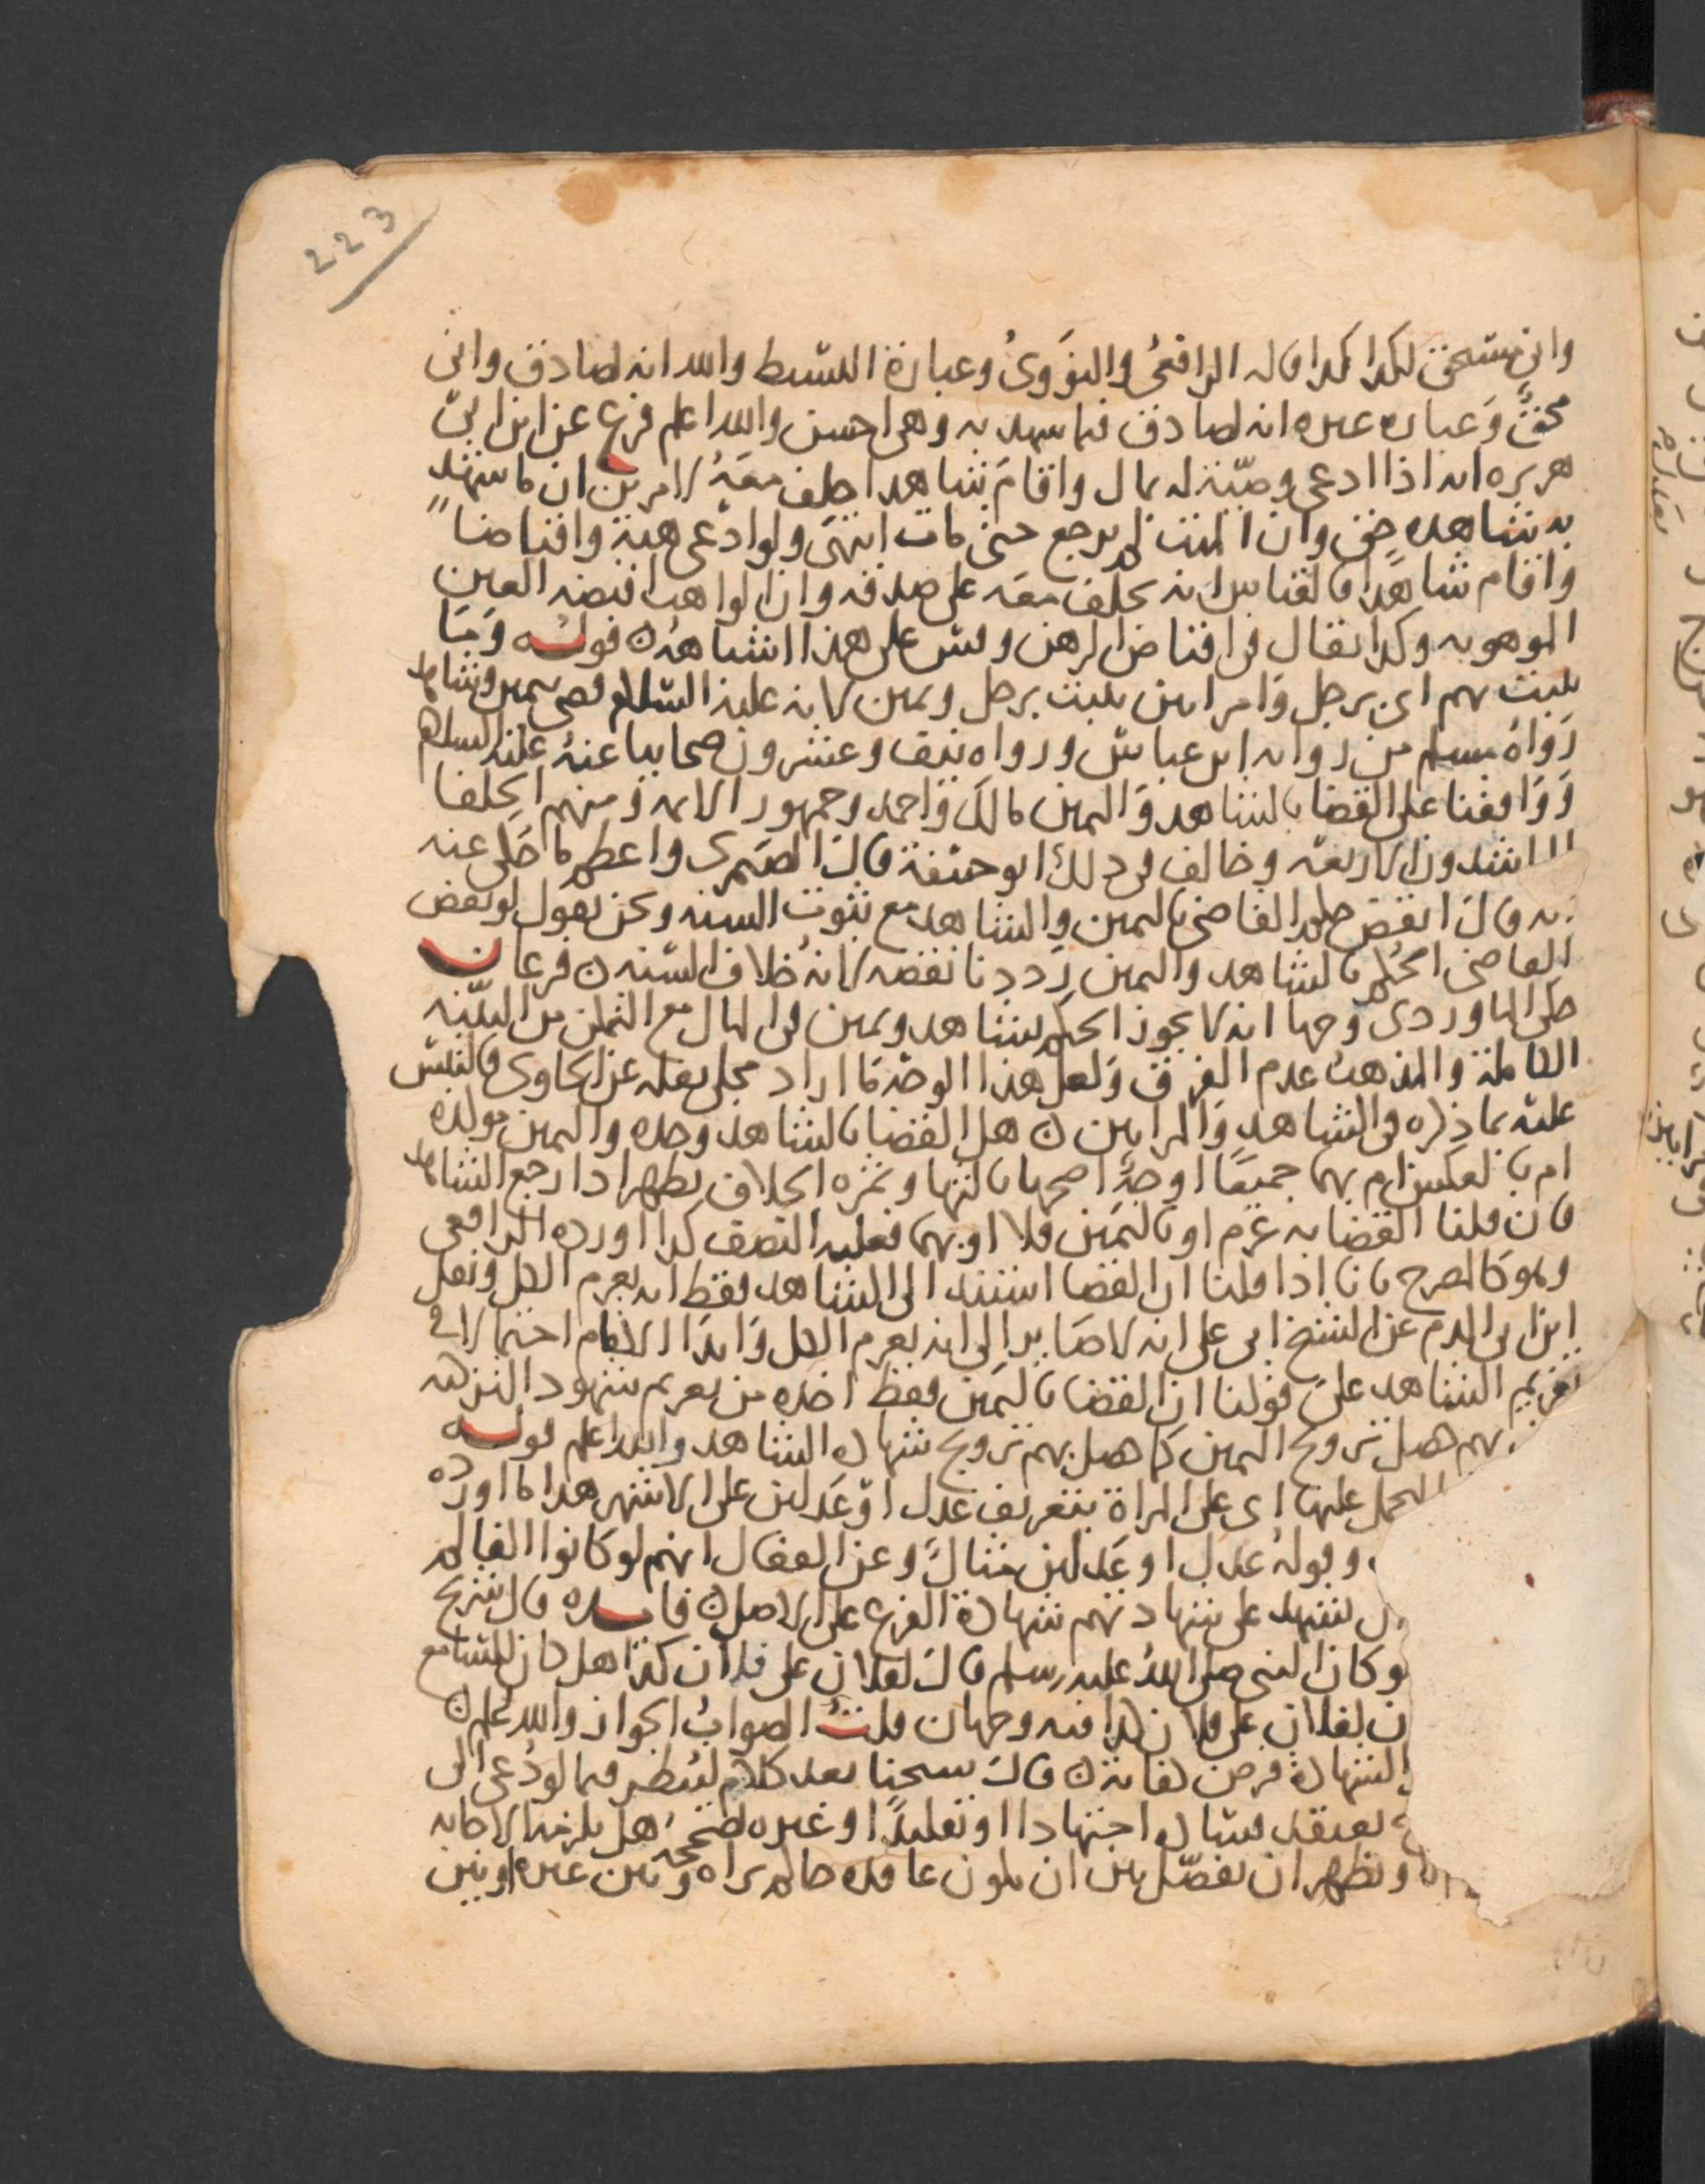 223
وانى مستحق لكذا كذا قاله الرافعىُ والنوَوىُ وعبارة البسيط والله انه لصادق وانى
محقٌّ وَعباره غيره انه لصادق فيما شهد به وهى احسن والله اعلم فرع عن ابن ابى
هريره انه اذا ادعى وصيّة له بمال واقامَ شاهدا حلف معَهُ لامرين ان ما شهد
به شاهده حق وان الميت لم يرجع حتى مات انتهَى ولو ادّعى هبة واقباضا
واقام شاهدًا فالقياس انه يحلف معَه على صدقه وان الواهب اقبضه العين
الموهوبه وكذا يقال فى اقباض الرهن وقس على هذا اشباههُ ن قوله وَمَا
يثبت بهم اى برجل وَامراتين يثبت برجل ويمين لانه عليه السّلام قضى بيمين وشاهد
رَوَاهُ مسلم من روايه ابن عباسٍ ورواه نيف وعشرون صحابيا عنهُ عليه السلام
وَوَافقنا على القضا بالشاهد وَاليمين مالك وَاحمد وجمهور الايمه وَمنهم الخلفا
الراشدون الاربعه وخالف فى ذلك ابو حنيفة قالَ الصيمرى واعظم ما حَكى عنه
انه قالَ انقض حكم القاضى باليمين والشاهد مع ثبوت السنه ونحن نقول لو نقض
القاضى الحُكم بالشاهد واليمين رَددنا نقضه لانهُ خلاف السّنه ن فرعان
حكى الماوردى وَجها انه لا يجوز الحكم بشاهد ويمين فى المال مع التمكن من البيّنه
الكاملة والمذهبُ عدم الفرق وَلعل هذا الوجهَ مَا اراد مجلى بنقله عن الحاوى فالتبس
عليه بما ذكره فى الشاهد وَالمراتين ن هل القضا بالشاهد وحده واليمين مولده
ام بالعكس ام بهما جميعًا اوجهٌ اصحها ثالثها وثمره الخلاف يظهر اذا رجع الشاهد
فان قلنا القضا به غرم او باليَمين فلا او بهما فعليه النصف كذا اورده الرافعى
وهو كالمصرح بانا اذا قلنا ان القضا استند الى الشاهد فقط انه يغرم الكل ونقل
ابن ابى الدم عن الشيخ ابى على انه لا صَاير الى انه يغرم الكل وَابدَا الامام احتمالا فى
تغريم الشاهد علىَ قولنا ان القضا باليَمين فقط اخذه من تغريم شهود التزكيه
بهم حصل ترويج اليمين كما حصل بهم ترويج شهاده الشاهد والله اعلم قوله
التحمل عليها اى على المراة بتعريف عَدل اوْ عَدلين على الاشهر هذا ما اورده
وقولهُ عدل او عَدلين مثالٌ وعن القفال انهم لو كانوا الفا لم
يشهد على شهادتهم شهادة الفرع على الاصل ن فايده قال شريح
لو كان النبى صلى اللهُ عليه وسلم قالَ لفلان على فلان كذا هل كان للسامع
لفلان على فلان كذا فيه وجهان قلتُ الصوابُ الجواز والله اعلم ن
الشهادة فرض كفاية ن قالَ شيخنا بعد كلام ليُنظر فيما لو دُعى الى
يعتقد فساده اجتهادا او تقليدًا او غيره صححهُ هل يلزمه الاجابه
ويظهر ان نفصّل بين ان يكون عاقده حاكم يراه وَبين غيره او بين